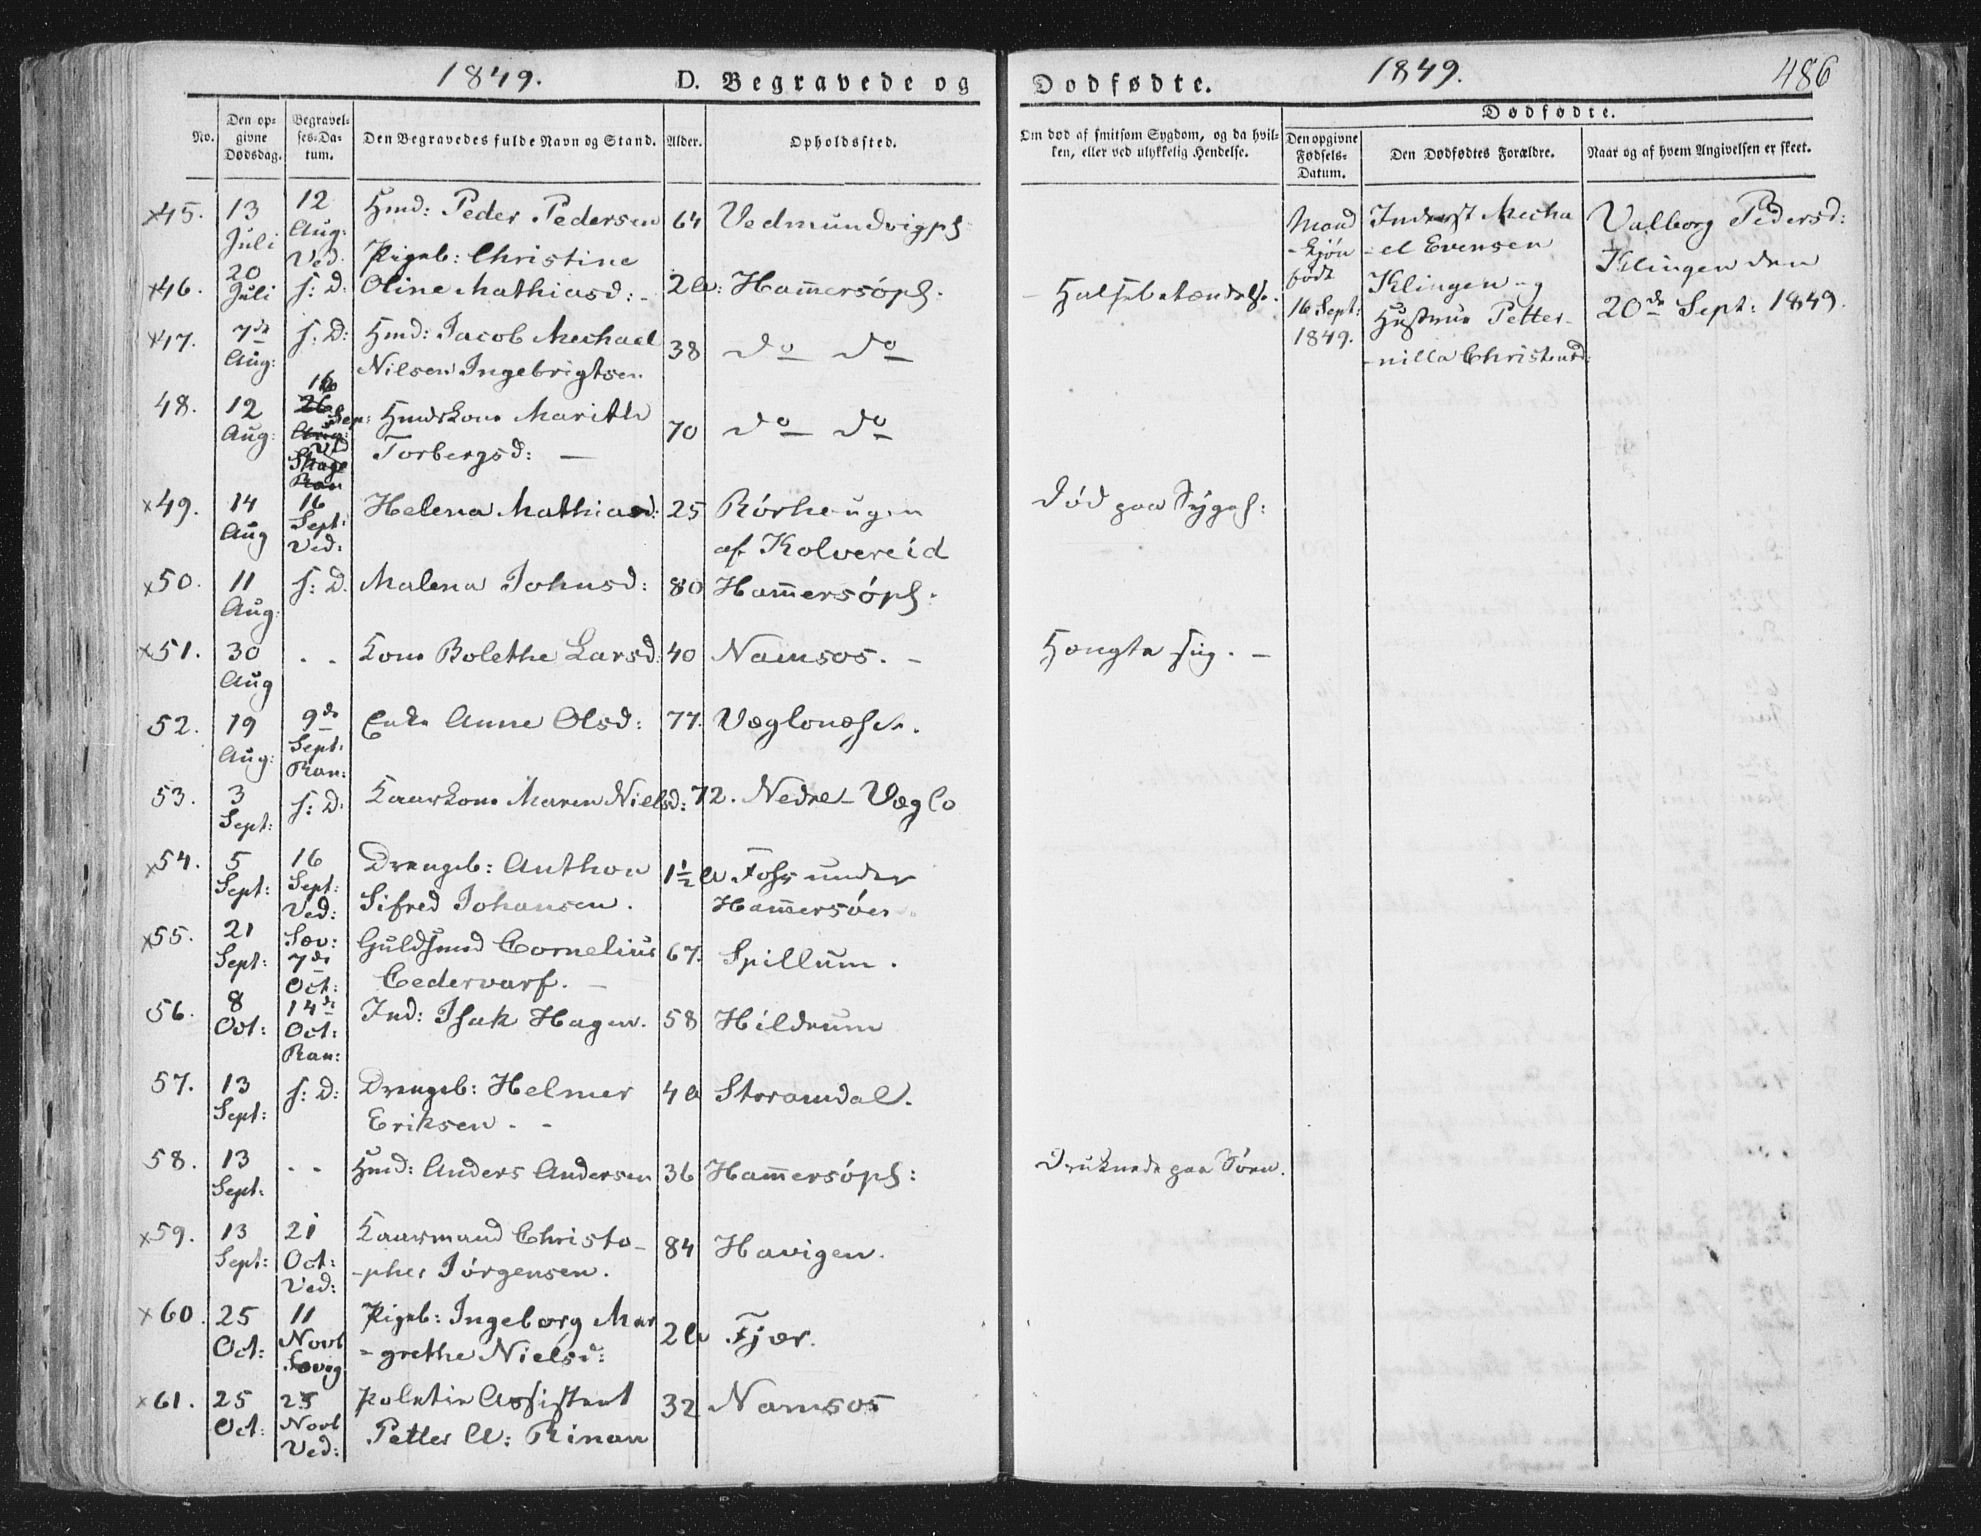 1849. D. Begravede og
Dødfødte. 1849. 486
No. Den opgivne Dødsdag. Begravelses-Datum. Den Begravedes fulde Navn og Stand. Alder. Opholdssted.
Om død af smitsom Sygdom, og da hvilken, eller ved ulykkelig Hendelse. Den opgivne Fødsels-Datum. Den Dødfødtes Forældre. Naar og af hvem Angivelsen er skeet.
Dødfødte.
×45. 13 Juli 12 Aug: Ved. Hmd: Peder Pedersen 64 Vedmundvigpl:
×46. 20 Juli s: D: Pigeb: Christine
Oline Mathiasd: - 2 a: Ham̄ersøpl. - Halsbetændelse.
×47. 7de Aug: s: D: Hmd: Jacob Mechael
Nilsen Ingebrigtsen 38 do do
48. 12 Aug: 16 Sep: Ved Hmdskone Marith
Torbergsd: — 70 do do
×49. 14 Aug 16 Sept: Ved: Helena Mathiasd: 25 Rørhaugen
af Kolvereid Død paa Sygeh:
×50. 11 Aug: s: D. Malena Johnsd: 80 Ham̄ersøpl.
×51. 30 Aug - - Kone Bolethe Larsd 40 Namsos. - Hængte sig. —
52. 19 Aug: 9de Sept: Ran: Enke Anne Olsd: 77. Væglonæsset.
53. 3 Sept: s: D. Kaarkone Maren Nielsd: 72. Nedre Væglo
×54. 5 Sept: 16 Sept: Ved: Drengeb: Anthon
Sifred Johansen. 1½ a Foss under
Ham̄ersøen
×55. 21 Sept: Sæv: 7de Oct: Guldsmed Cornelius
Cedervarf. — 67. Spillum.
56. 8 Oct: 14de Oct: Ran: Ind: Isak Hagen. 58 Hildrum
57. 13 Sept: s: D: Drengeb: Helmer
Eriksen - - 4 a Storamdal.
58. 13 Sept: - - Hmd: Anders Andersen 36 Ham̄ersøpl: Druknede paa Søen.
×59. 13 Sept: 21 Oct: Ved: Kaarmand Christo-
-pher Jørgensen. 84 Havigen.
×60. 25 Oct: 11 Novb Sævig Pigeb: Ingeborg Mar
-grethe Nielsd: 2 a Fjær.
×61. 25 Oct: 25 Novb Ved: Politie Assistent
Petter A: Rinan 32 Namsos
Mand
-kjøn
født
16 Sept:
1849.
Inderst Mecha
-el Evensen
Klingen og
Hustrue Petter-
-nilla Christensd:
Valborg Pedersd:
Klingen den
20de Sept: 1849.